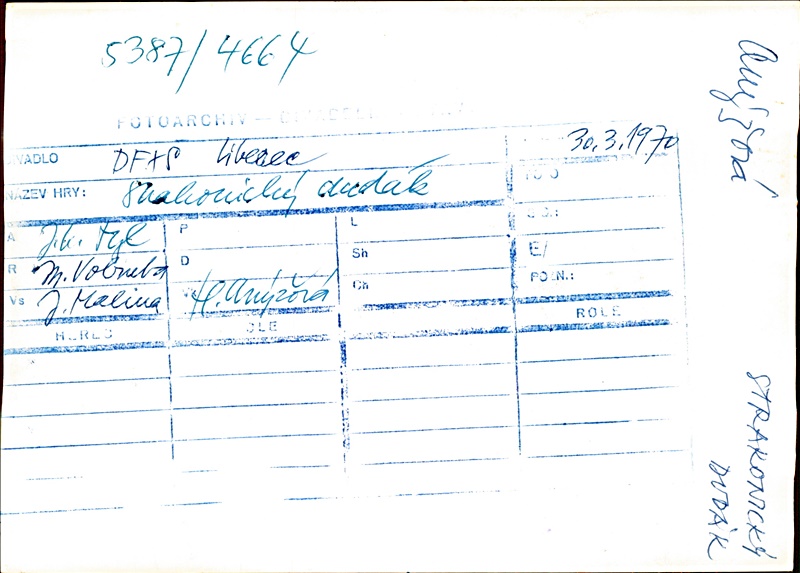 5387/4664
FOTOARCHIV —
30.3.1970
IVADLO DFXŠ Liberec
NÁZEV HRY: Strakonický dudák
A J.K. Tyl P L
R M. Vobruba D Sh E/
Vs J. Malina H. Anýžová Ch POZN.:
HEREC OLE ROLE
Anýžová
STRAKONICKÝ
DUDÁK